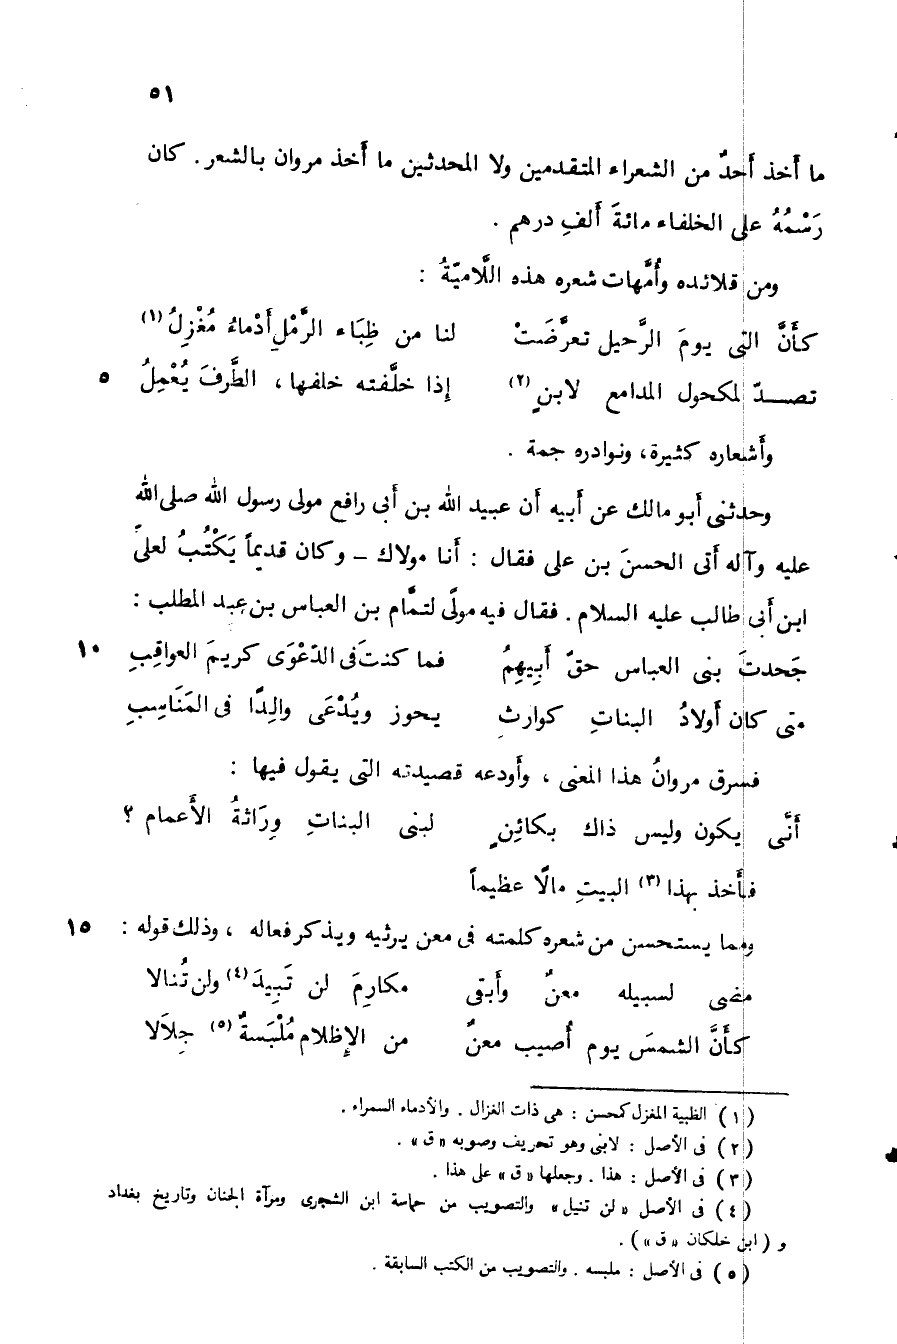 ٥١
ما أَخذ أَحدٌ من الشعراء المتقدمين ولا المحدثين ما أَخذ مروان بالشعر . كان
رَسْمُهُ على الخلفاء مائةَ أَلفِ درهم .
ومن قلائده وأُمَّهات شعره هذه اللَّاميّةُ :
كأَنَّ التى يومَ الرَّحيل تعرَّضَتْ لنا من ظِبَاء الرَّمْلِ أَدْماءُ مُغْزِلُ (١)
تصـــدّ لمكحول المدامع لابنٍ (٢) إذا خلَّفته خلفها ، الطَّرفَ يُعْمِلُ ٥
وأَشعاره كثيرة، ونوادره جمة .
وحدثنى أَبو مالك عن أَبيه أن عبيد الله بن أَبى رافع مولى رسول الله صلى الله
عليه وآله أتى الحسنَ بن على فقال : أَنا مولاك – وكان قديماً يَكْتُبُ لعلىّ
ابن أَبى طالب عليه السلام . فقال فيه مولًى لتمَّام بن العباس بن عبد المطلب :
جَحدتَ بنى العباس حقّ أَبِيهِمُ فما كنتَ فى الدّعْوَى كريمَ العواقِبِ ١٠
متى كان أَولادُ البناتِ كوارثٍ يحوز ويُدْعَى والِدًا فى المَنَاسِبِ
فسرق مروانُ هذا المعنى ، وأَودعه قصيدته التى يقول فيها :
أَنَّى يكون وليس ذاك بكائِنٍ لبنى البناتِ وِرَاثةُ الأَعمام ؟
فأَخذ بهذا (٣) البيتِ مالًا عظيماً
ومما يستحسن من شعره كلمته فى معن يرثيه ويذكر فعاله ، وذلك قوله : ١٥
مضى لسبيله معنٌ وأَبقى مكارِمَ لن تَبِيدَ (٤) ولن تُنالا
كأَنَّ الشمسَ يوم أُصيب معنٌ من الإِظلام مُلْبَسةٌ (٥) جِلاَلا
(١) الظبية المغزل كمحسن : هى ذات الغزال . والأدماء السمراء .
(٢) فى الأصل : لابنى وهو تحريف وصوبه « ق » .
(٣) فى الأصل : هذا . وجعلها « ق » على هذا .
(٤) فى الأصل « لن تنيل » والتصويب من حماسة ابن الشجرى ومرآة الجنان وتاريخ بغداد
و ( ابن خلكان « ق » ) .
(٥) فى الأصل : ملبسه . والتصويب من الكتب السابقة .